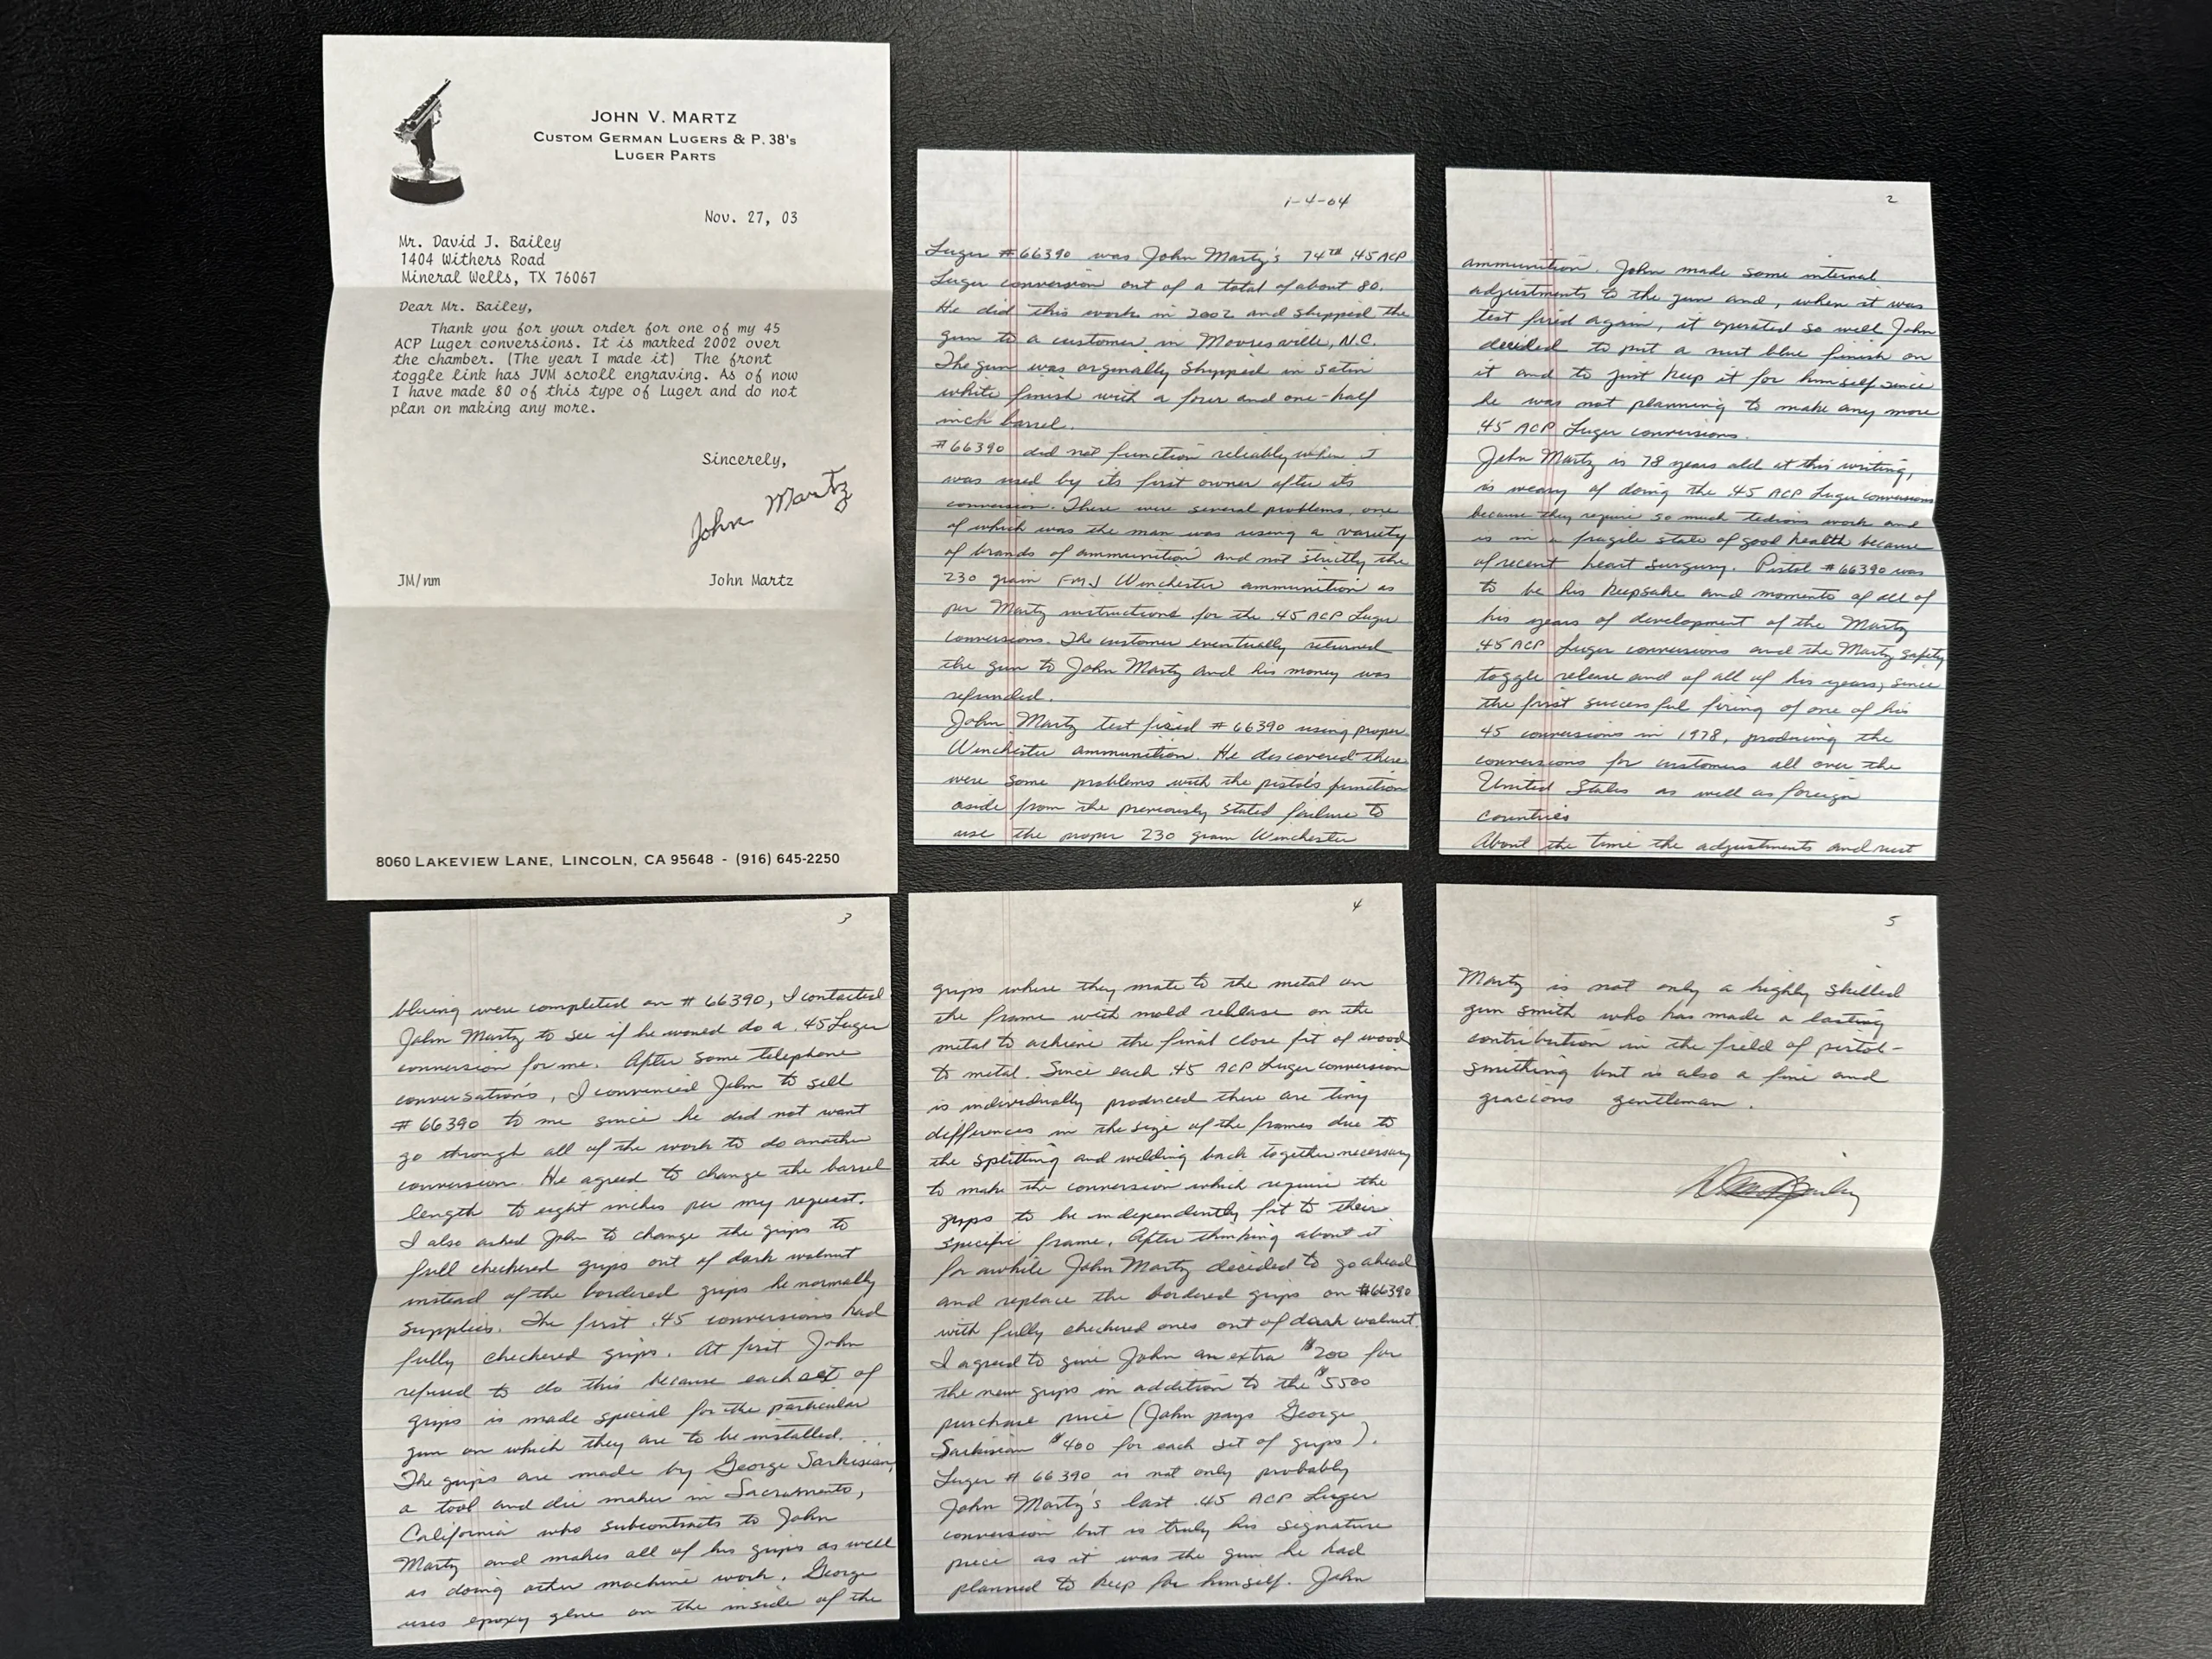 JOHN V. MARTZ
CUSTOM GERMAN LUGERS & P.38's
LUGER PARTS
Nov. 27, 03
Mr. David J. Bailey
1404 Withers Road
Mineral Wells, TX 76067
Dear Mr. Bailey,
Thank you for your order for one of my 45
ACP Luger conversions. It is marked 2002 over
the chamber. (The year I made it) The front
toggle link has JVM scroll engraving. As of now
I have made 80 of this type of Luger and do not
plan on making any more.
Sincerely,
John Martz
JM/nm
John Martz
8060 LAKEVIEW LANE, LINCOLN, CA 95648 - (916) 645-2250
1-4-04
Luger #66390 was John Martz's 74TH .45 ACP
Luger conversion out of a total of about 80.
He did this work in 2002 and shipped the
gun to a customer in Mooresville, N.C.
The gun was orginally shipped in satin
white finish with a four and one-half
inch barrel.
#66390 did not function reliably when it
was used by its first owner after its
conversion. There were several problems, one
of which was the man was using a variety
of brands of ammunition and not strictly the
230 grain FMJ Winchester ammunition as
per Martz instructions for the .45 ACP Luger
conversions. The customer eventually returned
the gun to John Martz and his money was
refunded.
John Martz test fired #66390 using proper
Winchester ammunition. He discovered there
were some problems with the pistol's function
aside from the previously stated failure to
use the proper 230 grain Winchester
2
ammunition. John made some internal
adjustments to the gun and, when it was
test fired again, it operated so well John
decided to put a rust blue finish on
it and to just keep it for himself since
he was not planning to make any more
.45 ACP Luger conversions.
John Martz is 78 years old at this writing,
is weary of doing the .45 ACP Luger conversions
because they require so much tedious work and
is in a fragile state of good health because
of recent heart surgery. Pistol #66390 was
to be his keepsake and momento of all of
his years of development of the Martz
.45 ACP Luger conversions and the Martz safety
toggle release and of all of his years, since
the first successful firing of one of his
45 conversions in 1978, producing the
conversions for customers all over the
United States as well as foreign
countries
About the time the adjustments and rust
3
bluing were completed on #66390, I contacted
John Martz to see if he would do a .45 Luger
conversion for me. After some telephone
conversations, I convinced John to sell
#66390 to me since he did not want
go through all of the work to do another
conversion. He agreed to change the barrel
length to eight inches per my request.
I also asked John to change the grips to
full checkered grips out of dark walnut
instead of the bordered grips he normally
supplies. The first .45 conversions had
fully checkered grips. At first John
refused to do this because each set of
grips is made special for the particular
gun on which they are to be installed.
The grips are made by George Sarkisian,
a tool and die maker in Sacramento,
California who subcontracts to John
Martz and makes all of his grips as well
as doing other machine work. George
uses epoxy glue on the inside of the
4
grips where they mate to the metal on
the frame with mold release on the
metal to achieve the final close fit of wood
to metal. Since each .45 ACP Luger conversion
is individually produced there are tiny
differences in the size of the frames due to
the splitting and welding back together necessary
to make the conversion which require the
grips to be independently fit to their
specific frame. After thinking about it
for awhile John Martz decided to go ahead
and replace the bordered grips on #66390
with fully checkered ones out of dark walnut.
I agreed to give John an extra $200 for
the new grips in addition to the $5500
purchase price (John pays George
Sarkisian $400 for each set of grips).
Luger #66390 is not only probably
John Martz's last .45 ACP Luger
conversion but is truly his signature
piece as it was the gun he had
planned to keep for himself. John
5
Martz is not only a highly skilled
gun smith who has made a lasting
contribution in the field of pistol-
smithing but is also a fine and
gracious gentleman.